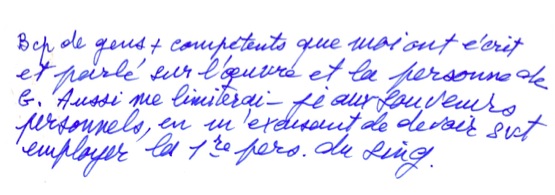 Bcp de gens + compétents que moi ont écrit
et parlé sur l'œuvre et la personne de
G. Aussi me limiterai-je aux souvenirs
personnels, en m'excusant de devoir svt
employer la 1re pers. du sing.